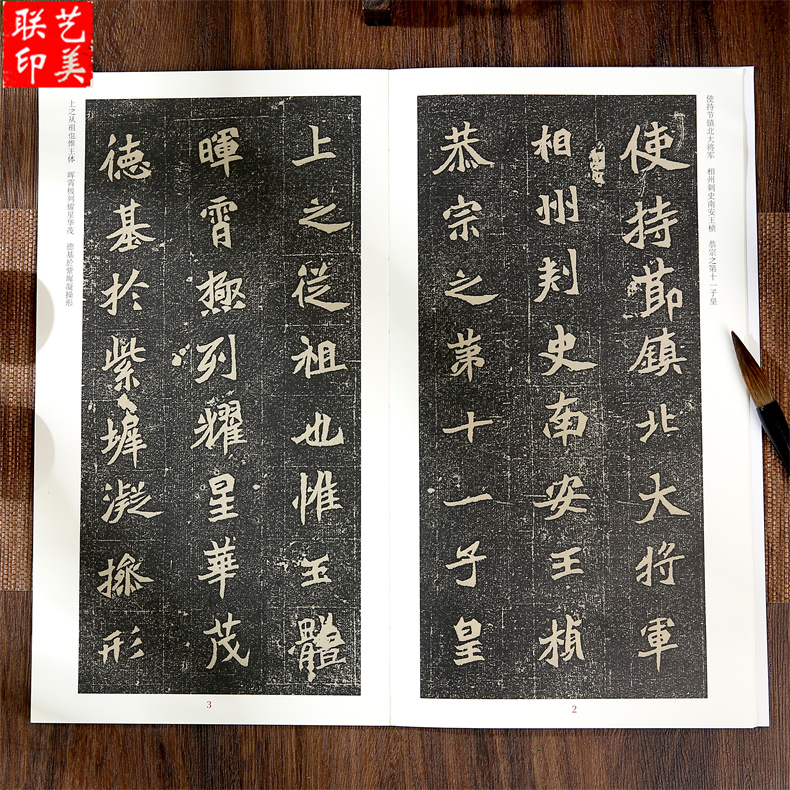 艺美
联印
使持节镇北大将军　相州刺史南安王桢　恭宗之第十一子皇
使持節鎮北大将軍
相州刾史南安王楨
恭宗之苐十一子皇
2
上之從祖也惟王體
暉霄極列耀星華茂
德基於紫墀凝操形
上之从祖也惟王体　晖霄极列耀星华茂　德基於紫墀凝操形
3